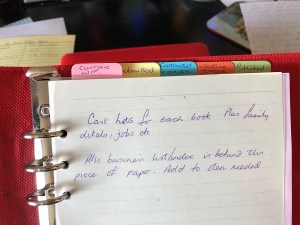 Submitted
Contracted
Published
Cast lists for each book. Plus family
details, jobs etc
Also business list/index is behind this
piece of paper. Add to when needed